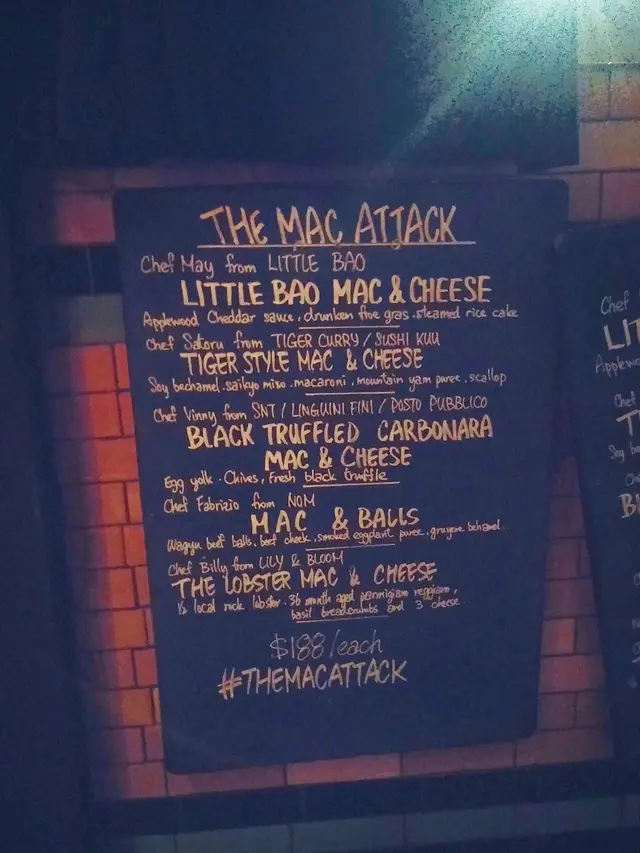 THE MAC ATTACK
Chef May from LITTLE BAO
LITTLE BAO MAC & CHEESE
Applewood Cheddar sauce, drunken foie gras, steamed rice cake
Chef Satoru from TIGER CURRY / SUSHI KUU
TIGER STYLE MAC & CHEESE
Soy bechamel. saikyo miso. macaroni. mountain yam puree. scallop
Chef Vinny from SNT / LINGUINI FINI / POSTO PUBBLICO
BLACK TRUFFLED CARBONARA
MAC & CHEESE
Egg yolk. Chives, Fresh black truffle
Chef Fabrizio from NOM
MAC & BALLS
Wagyu beef balls, beef cheek, smoked eggplant puree. gruyere
Chef Billy from LILY & BLOOM
THE LOBSTER MAC & CHEESE
½ local rock lobster. 36 month aged parmigiano reggiano,
basil breadcrumbs and 3 cheese
$188/each
#THEMACATTACK
Chef